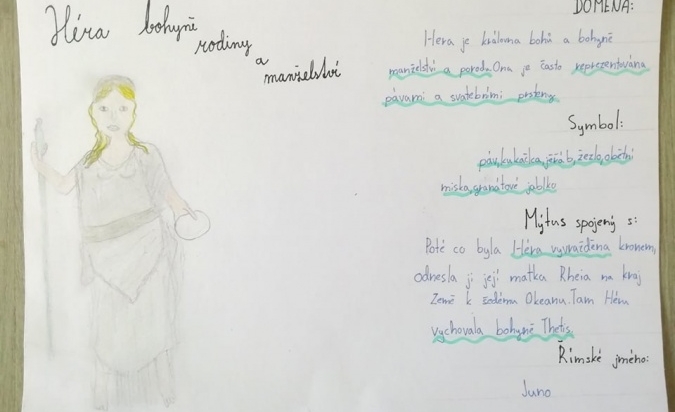 Héra bohyně
rodiny
a
manželství
DOMÉNA:
Hera je královna bohů a bohyně
manželství a porodu. Ona je často reprezentována
pávami a svatebními prsteny.
Symbol:
páv, kukačka, jeřáb, žezlo, obětní
miska, granátové jablko
Mýtus spojený s:
Poté co byla Héra vyvražděna kronem,
odnesla ji její matka Rheia na kraj
Země k šedému Okeanu. Tam Héru
vychovala bohyně Thetis.
Římské jméno:
Juno